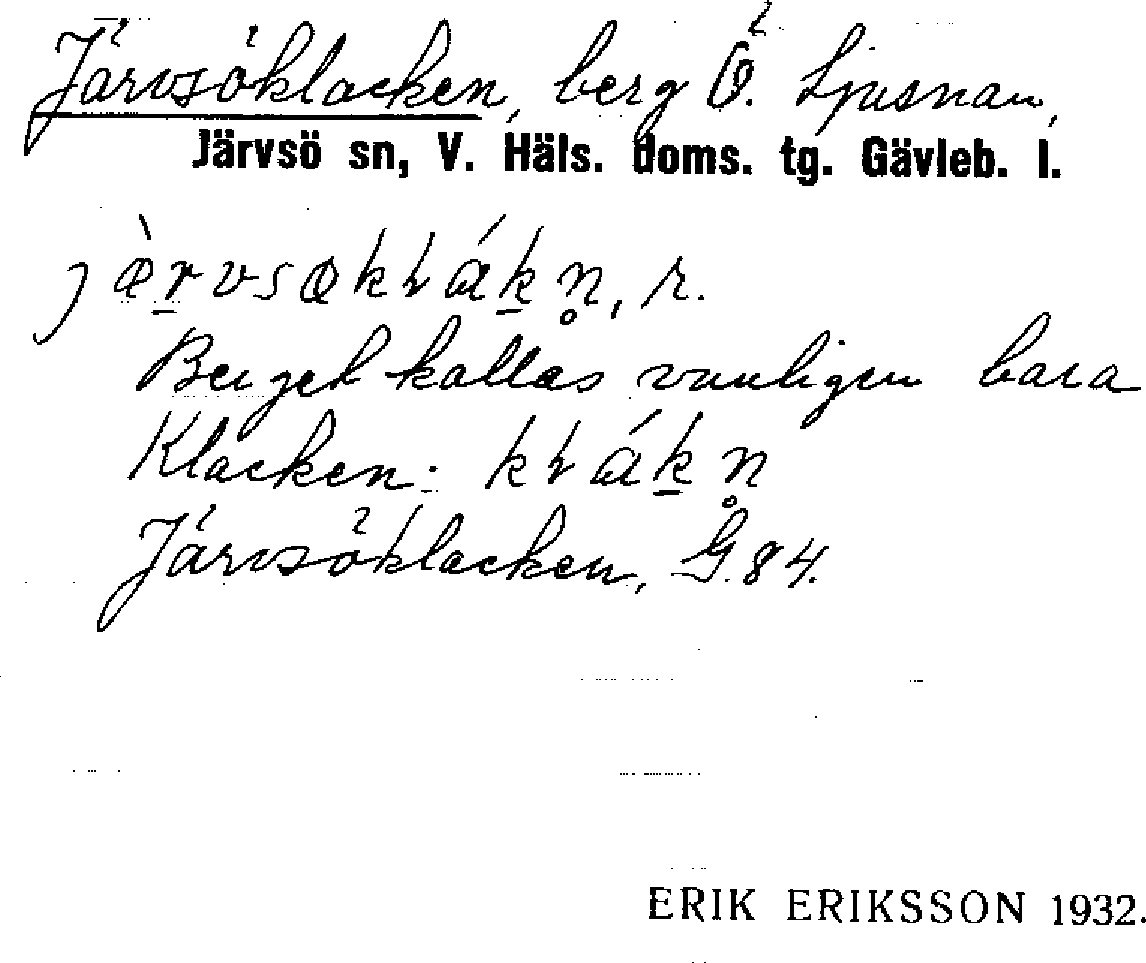 Järvsöklacken, berg Ö. Ljusnan,
Järvsö sn, V. Häls. doms. tg. Gävleb. l.
jæ̀r̲vsøkɬák̲n̥, r.
Berget kallas vanligen bara
Klacken: kɬák̲n̥
Järvsöklacken, G. 84.
ERIK ERIKSSON 1932.